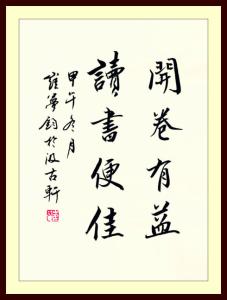 開卷有益
讀書便佳
甲午冬月
羅夢鈞於汲古軒